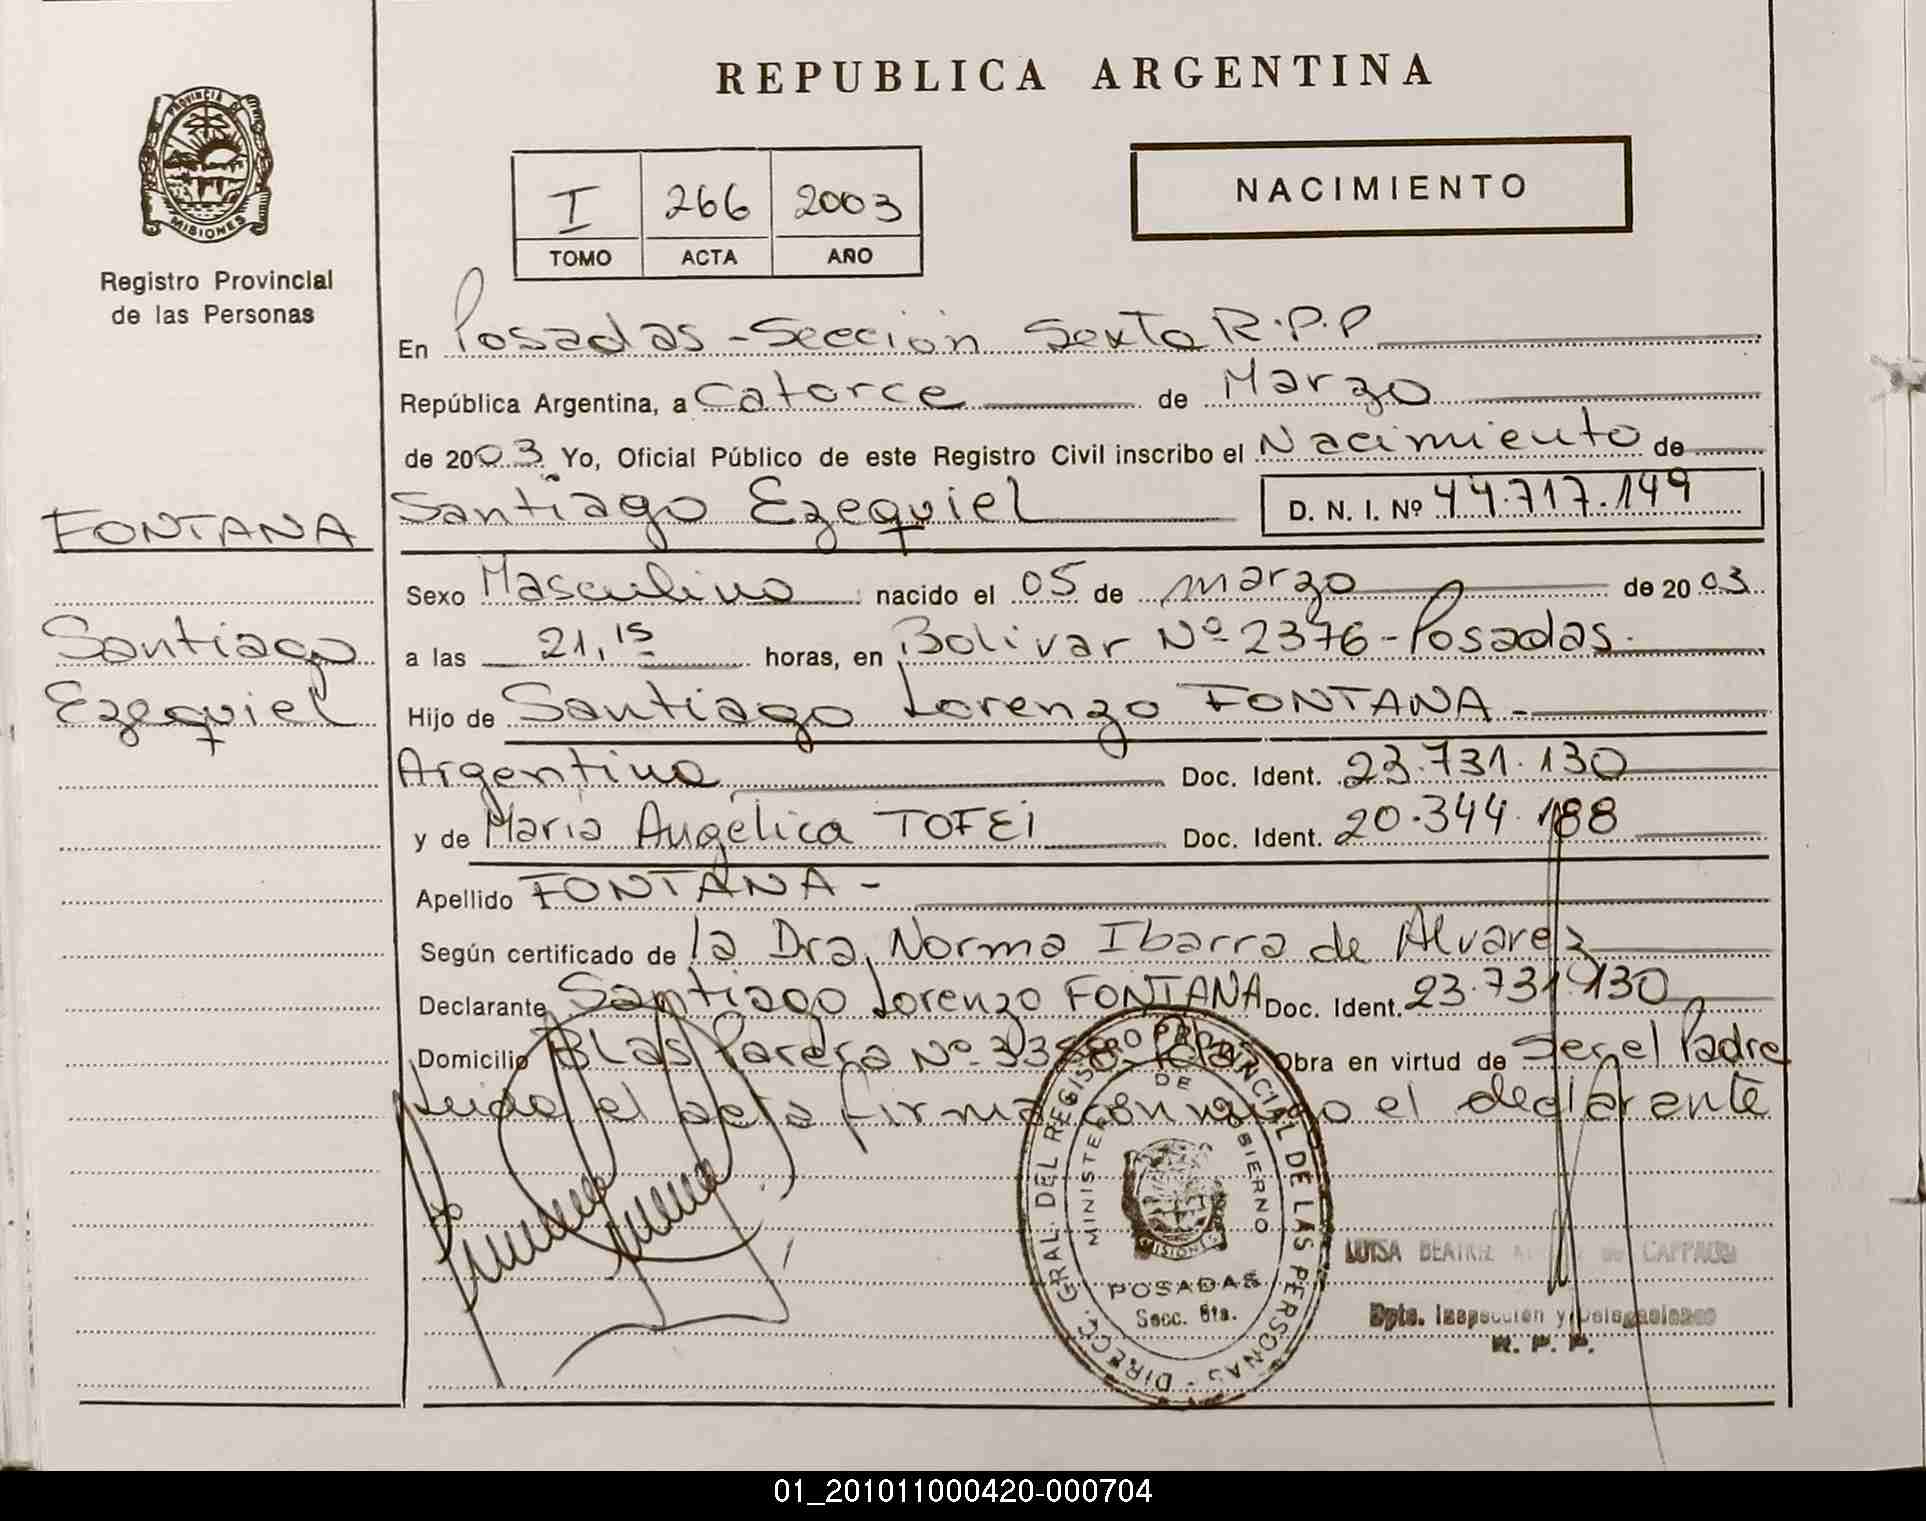 REPUBLICA ARGENTINA
PROVINCIA DE
MISIONES
Registro Provincial
de las Personas
I 266 2003
TOMO ACTA AÑO
NACIMIENTO
En Posadas - Sección Sexta R.P.P
República Argentina, a Catorce de Marzo
de 2003 Yo, Oficial Público de este Registro Civil inscribo el Nacimiento de
Santiago Ezequiel D. N. I. Nº 44.717.149
FONTANA
Santiago
Ezequiel
Sexo Masculino nacido el 05 de marzo de 2003
a las 21,15 horas, en Bolivar Nº 2376 - Posadas.
Hijo de Santiago Lorenzo FONTANA -
Argentino Doc. Ident. 23.731.130
y de María Angélica TOFEI Doc. Ident. 20.344.188
Apellido FONTANA -
Según certificado de la Dra. Norma Ibarra de Alvarez
Declarante Santiago Lorenzo FONTANA Doc. Ident. 23.731.130
Domicilio BLas Parera Nº Obra en virtud de Ser el Padre
Leida el acta firma conmigo el declarante
DIRECC. GRAL. DEL REGISTRO PROVINCIAL DE LAS PERSONAS
MINISTERIO DE GOBIERNO
MISIONES
POSADAS
Secc. 6ta.
LUISA BEATRIZ de
Dpto. Inspección y Delegaciones
R. P. P.
01_201011000420-000704